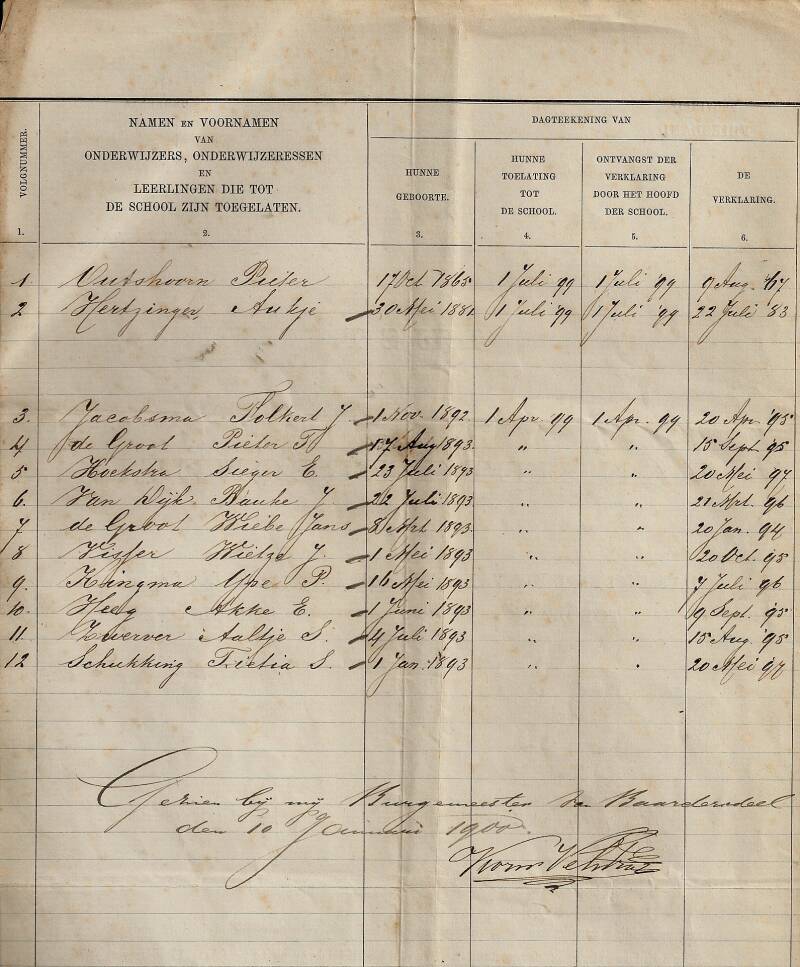 VOLGNUMMER.
NAMEN EN VOORNAMEN
VAN
ONDERWIJZERS, ONDERWIJZERESSEN
EN
LEERLINGEN DIE TOT
DE SCHOOL ZIJN TOEGELATEN.
DAGTEEKENING VAN
HUNNE
GEBOORTE.
HUNNE
TOELATING
TOT
DE SCHOOL.
ONTVANGST DER
VERKLARING
DOOR HET HOOFD
DER SCHOOL.
DE
VERKLARING.
1. 2. 3. 4. 5. 6.
1 Outshoorn Pieter 17 Oct 1865 1 Juli '99 1 Juli '99 9 Aug. '67
2 Hertzinger Aukje 30 Mei 1881 1 Juli '99 1 Juli '99 22 Juli '83
3. Jacobsma Folkert J. 1 Nov. 1892 1 Apr. '99 1 Apr. '99 20 Apr. '95
4 de Groot Pieter T. 17 Aug 1893 " " 15 Sept. '95
5 Hoekstra Sieger E. 23 Juli 1893 " " 20 Mei '97
6. Van Dijk Bauke J. 22 Juli 1893 " " 21 Mrt. '96
7 de Groot Wiebe Jans 8 Mrt 1893 " " 20 Jan. '94
8 Visser Wietze J. 1 Mei 1893 " " 20 Oct. '95
9. Kingma Ype P. 16 Mei 1893 " " 7 Juli '96
10. Heeg Akke E. 1 Juni 1893 " " 9 Sept. '95
11. Zwerver Aaltje S. 4 Juli 1893 " " 15 Aug. '95
12 Schukking Tietia S. 1 Jan. 1893 " " 20 Mei '97
Gezien bij mij Burgemeester van Baarderadeel
den 10 Januari 1900.